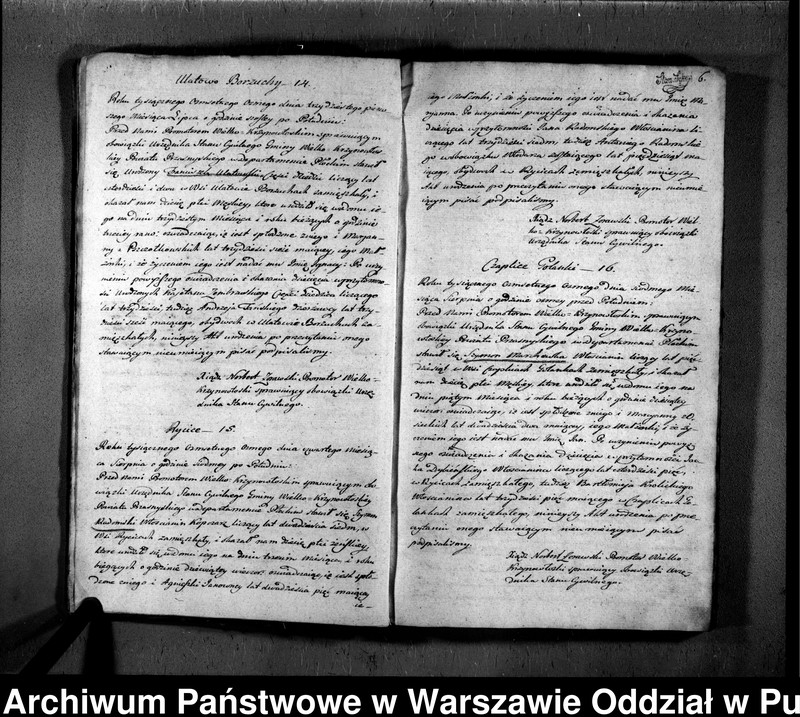 Ulatowo Borzuchy — 14.
Roku tysiącznego Osmsetnego Osmego dnia trzydziestego pierw
szego Miesiąca Lipca o godzinie szostey po Południu:
Przed Nami Promotorem Wielko Krzynowłoskim sprawuiącym
obowiązki Urzędnika Stanu Cywilnego Gminy Wielko-Krzynowłos
kiey Powiatu Przasnyskiego w departamencie Płockim stawił
się Urodzony Ulatowski Części dziedzic liczący lat
czterdzieści i dwa w Wsi Ulatowie Borzuchach zamieszkały, i
okazał nam dziecię płci Męskiey, ktore urodziło się w domu ie-
go na dniu trzydziestym Miesiąca i roku bieżących o godzinie
trzeciey rano; oswiadczaiąc, iż iest spłodzone z niego i Maryan
ny z lat trzydzieści sześć maiącey, iego Mał-
żonki; i iż życzeniem iego iest nadać mu Imię Ignacy: Po uczy
nieniu powyższego oswiadczenia i okazaniu dziecięcia w przytomno-
ści Urodzonych Kajetana Części dziedzica liczącego
lat trzydzieści, tudzież Andrzeja dzierzawcy lat trzy-
dzieści sześć maiącego, obydwoch w Ulatowie Borzuchach za-
mieszkałych, ninieyszy Akt urodzenia po przeczytaniu onego
stawaiącym nieumieiącym pisać podpisaliśmy.
Xiądz Norbert Promotor Wielko-
Krzynowłoski sprawuiący obowiązki Urzę-
dnika Stanu Cywilnego.
Rycice — 15.
Roku tysiącznego Osmsetnego Osmego dnia czwartego Miesią-
ca Sierpnia o godzinie siodmey po Południu:
Przed Nami Promotorem Wielko Krzynowłoskim sprawuiącym obo
wiązki Urzędnika Stanu Cywilnego Gminy Wielko-Krzynowłoskiey
Powiatu Przasnyskiego w departamencie Płockim stawił się Szymon
Radomski Włościanin liczący lat dwadzieścia siedm, w
Wsi Rycicach zamieszkały, i okazał nam dziecię płci żeńskiey,
ktore urodziło się w domu iego na dniu trzecim Miesiąca i roku
bieżących o godzinie dziewiątey wieczor; oswiadczaiąc, iż iest spło-
dzone z niego i Agnieszki lat dwadzieścia pięć maiącey
ie-
6.
iego Małżonki; i iż życzeniem iego iest nadać mu Imię Ma-
ryanna. Po uczynieniu powyższego oswiadczenia i okazaniu
dziecięcia w przytomności Jana Radomskiego Włościanina li-
czącego lat trzydzieści siedm, tudzież Antoniego Radomskie-
go w obowiązku Włodarza zostaiącego lat pięćdziesiąt ma-
iącego, obydwoch w Rycicach zamieszkałych, ninieyszy
Akt urodzenia po przeczytaniu onego stawaiącym nieumie-
iącym pisać podpisaliśmy.
Xiądz Norbert Promotor Wiel-
ko-Krzynowłoski sprawuiący obowiązki
Urzędnika Stanu Cywilnego.
Czaplice — 16.
Roku tysiącznego Osmsetnego Osmego dnia siodmego Mie-
siąca Sierpnia o godzinie osmey przed Południem:
Przed Nami Promotorem Wielko-Krzynowłoskim sprawuiącym
obowiązki Urzędnika Stanu Cywilnego Gminy Wielko-Krzyno-
włoskiey Powiatu Przasnyskiego w departamencie Płockim
stawił się Szymon Włościanin liczący lat pięć-
dziesiąt w Wsi Czaplicach zamieszkały; i okazał
nam dziecię płci Męskiey, ktore urodziło się w domu iego na
dniu piątym Miesiąca i roku bieżących o godzinie dziesiątey
wieczor; oswiadczaiąc, iż iest spłodzone z niego i Maryanny
lat dwadzieścia dwa maiącey, iego Małżonki; i iż ży-
czeniem iego iest nadać mu Imię Po uczynieniu powyż-
szego oswiadczenia i okazaniu dziecięcia w przytomności
Włościanina liczącego lat czterdzieści pięć,
w Rycicach zamieszkałego, tudzież Bartłomieja
Włościanina lat trzydzieści pięć maiącego w Czaplicach
zamieszkałego, ninieyszy Akt urodzenia po prze-
czytaniu onego stawaiącym nieumieiącym pisać
podpisaliśmy.
Xiądz Norbert Promotor Wielko
Krzynowłoski sprawuiący obowiązki Urzę-
dnika Stanu Cywilnego.
Archiwum Państwowe w Warszawie Oddział w Pu